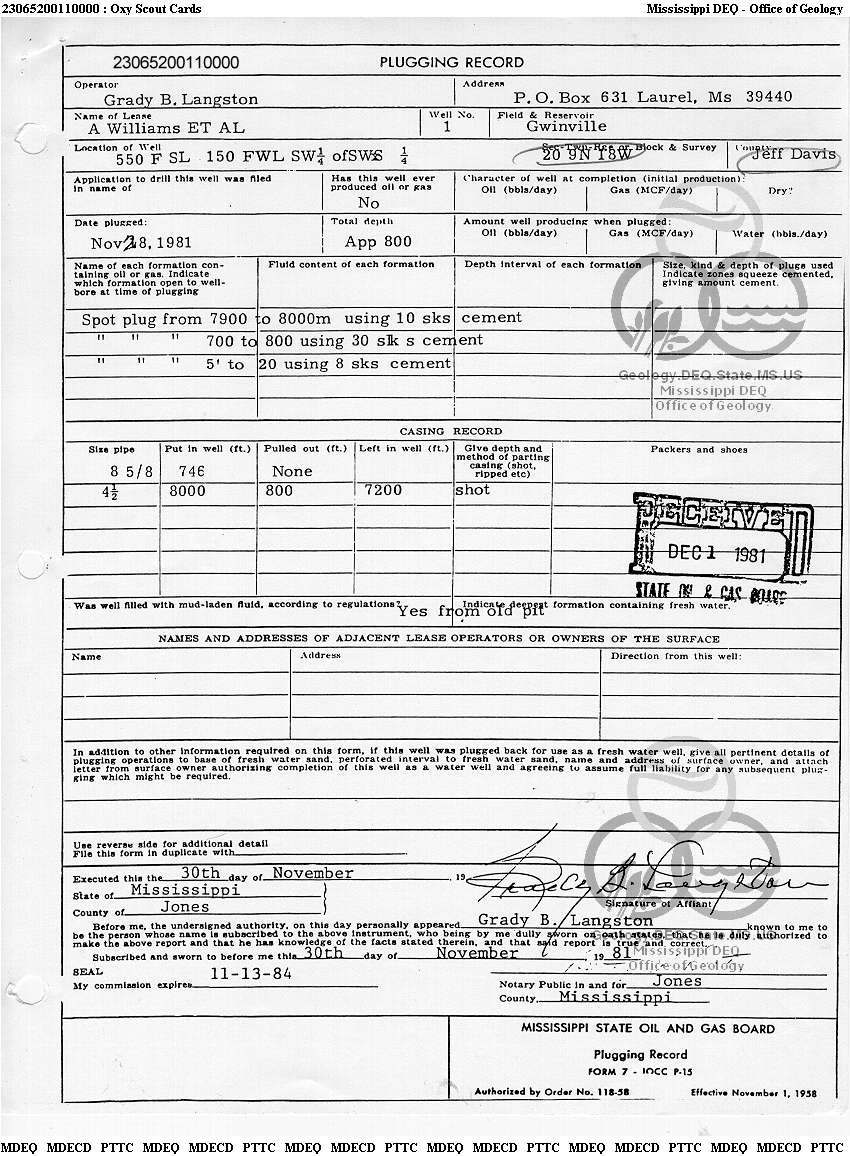 23065200110000 : Oxy Scout Cards Mississippi DEQ - Office of Geology
23065200110000 PLUGGING RECORD
Operator Address
Grady B. Langston P. O. Box 631 Laurel, Ms 39440
Name of Lease Well No. Field & Reservoir
A Williams ET AL 1 Gwinville
Location of Well Sec-Twp-Rge or Block & Survey County
550 F SL 150 FWL SW¼ of SW ¼ 20 9N 18W Jeff Davis
Application to drill this well was filed Has this well ever Character of well at completion (initial production):
in name of produced oil or gas Oil (bbls/day) Gas (MCF/day) Dry?
No
Date plugged: Total depth Amount well producing when plugged:
Oil (bbls/day) Gas (MCF/day) Water (bbls./day)
Nov 28, 1981 App 800
Name of each formation con- Fluid content of each formation Depth interval of each formation Size, kind & depth of plugs used
taining oil or gas. Indicate Indicate zones squeeze cemented,
which formation open to well- giving amount cement.
bore at time of plugging
Spot plug from 7900 to 8000m using 10 sks cement
" " " 700 to 800 using 30 sk s cement
" " " 5' to 20 using 8 sks cement
Geology.DEQ.State.MS.US
Mississippi DEQ
Office of Geology
CASING RECORD
Size pipe Put in well (ft.) Pulled out (ft.) Left in well (ft.) Give depth and Packers and shoes
method of parting
casing (shot,
ripped etc)
8 5/8 746 None
4½ 8000 800 7200 shot
RECEIVED
DEC 1 1981
STATE OIL & GAS BOARD
Was well filled with mud-laden fluid, according to regulations? Indicate deepest formation containing fresh water.
Yes from old pit
NAMES AND ADDRESSES OF ADJACENT LEASE OPERATORS OR OWNERS OF THE SURFACE
Name Address Direction from this well:
In addition to other information required on this form, if this well was plugged back for use as a fresh water well, give all pertinent details of
plugging operations to base of fresh water sand, perforated interval to fresh water sand, name and address of surface owner, and attach
letter from surface owner authorizing completion of this well as a water well and agreeing to assume full liability for any subsequent plug-
ging which might be required.
Use reverse side for additional detail
File this form in duplicate with
Executed this the 30th day of November , 19
State of Mississippi Grady B. Langston
County of Jones Signature of Affiant
Before me, the undersigned authority, on this day personally appeared Grady B. Langston known to me to
be the person whose name is subscribed to the above instrument, who being by me dully sworn on oath states, that he is dully authorized to
make the above report and that he has knowledge of the facts stated therein, and that said report is true and correct.
Subscribed and sworn to before me this 30th day of November , 19 81 Mississippi DEQ
Office of Geology
SEAL 11-13-84
My commission expires Notary Public in and for Jones
County, Mississippi
MISSISSIPPI STATE OIL AND GAS BOARD
Plugging Record
FORM 7 - IOCC P-15
Authorized by Order No. 118-58 Effective November 1, 1958
MDEQ MDECD PTTC MDEQ MDECD PTTC MDEQ MDECD PTTC MDEQ MDECD PTTC MDEQ MDECD PTTC MDEQ MDECD PTTC